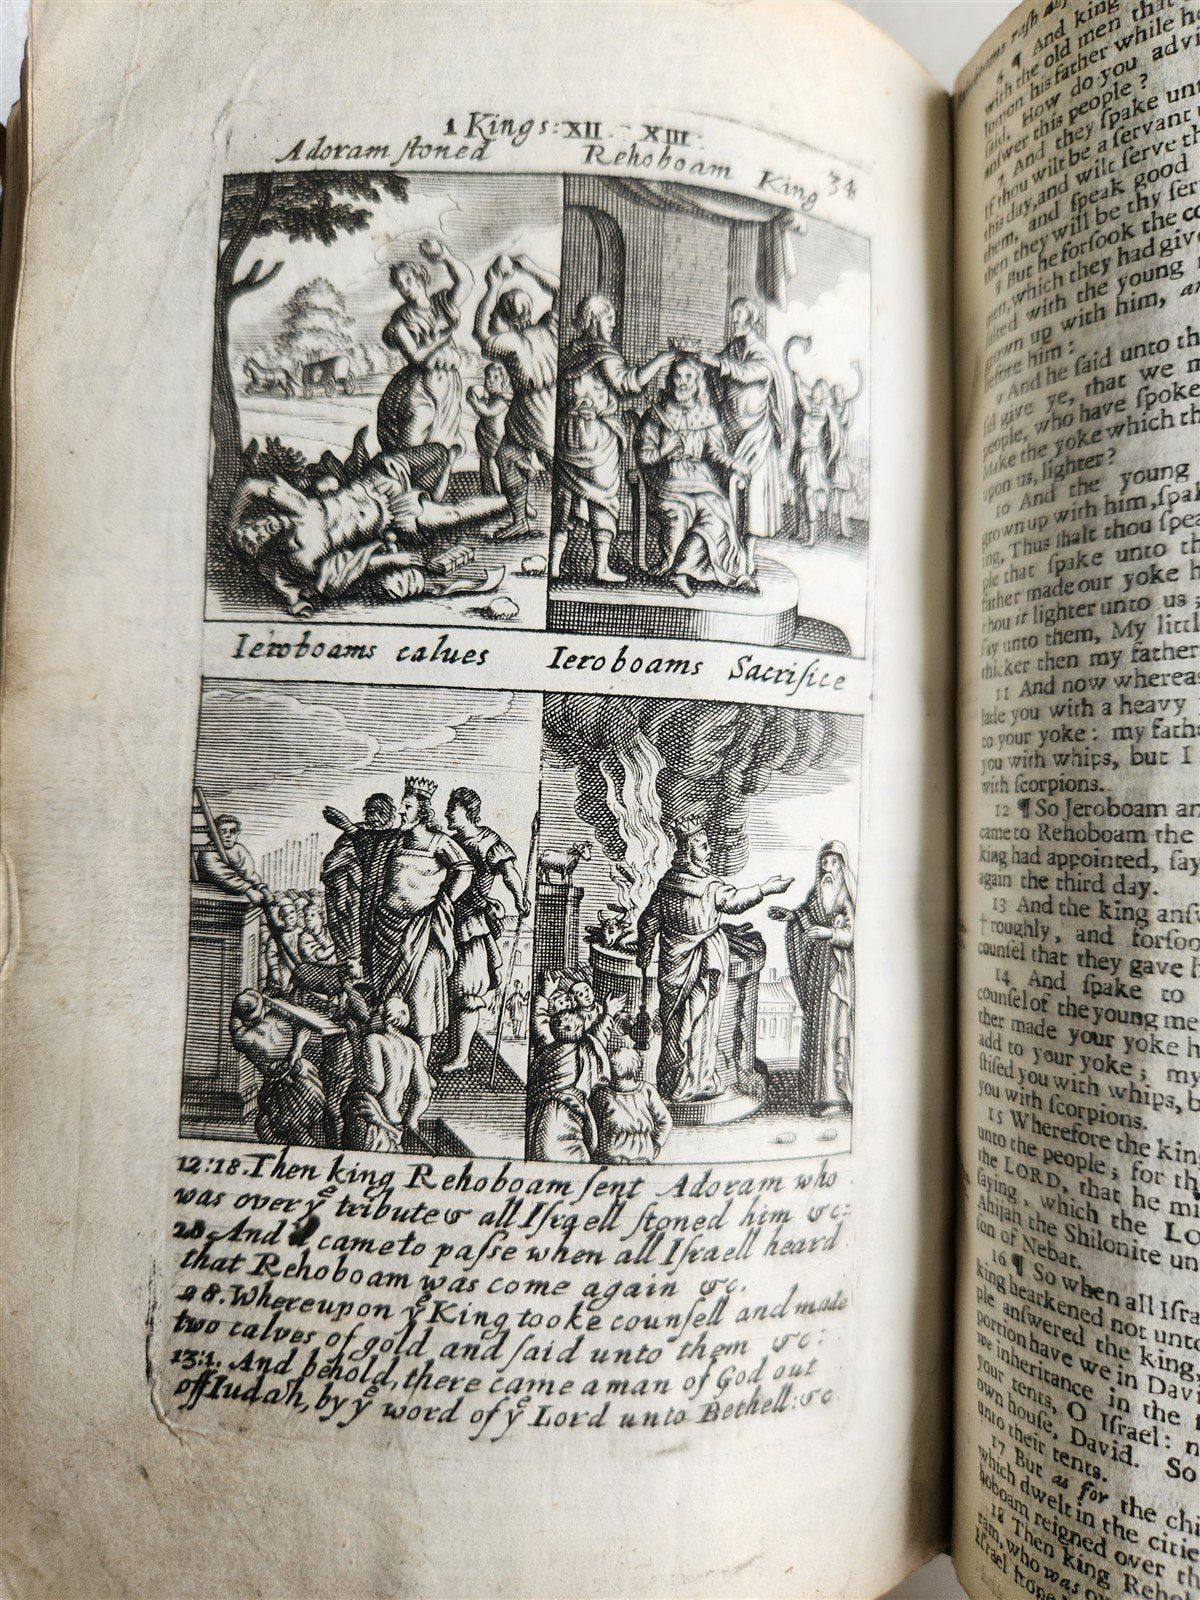 1 Kings: XII. XIII.
Adoram ſtoned
Rehoboam King
34
Ieroboams calues
Ieroboams Sacrifice
12:18. Then king Rehoboam ſent Adoram who
was over yᵉ tribute & all Iſraell ſtoned him &c:
20. And it came to paſse when all Iſraell heard
that Rehoboam was come again &c.
28. Whereupon yᵉ King tooke counſell and made
two calves of gold and ſaid unto them &c:
13:1. And behold, there came a man of God out
off Iudah, by yᵉ word of yᵉ Lord unto Bethell: &c.
6 ¶ And king
with the old men that
lomon his father while he
ſaid, How do you advi
anſwer this people?
7 And they ſpake unt
if thou wilt be a ſervant
this day, and wilt ſerve th
them, and ſpeak good
then they will be thy ſer
8 But he forſook the co
men, which they had give
ſulted with the young
grown up with him, an
before him:
9 And he ſaid unto th
ſel give ye, that we m
people, who have ſpoke
Make the yoke which th
upon us, lighter?
10 And the young
grown up with him, ſpak
ing, Thus ſhalt thou ſpea
ple that ſpake unto th
father made our yoke h
thou it lighter unto us;
ſay unto them, My littl
thicker then my father
11 And now whereas
lade you with a heavy
to your yoke: my fath
you with whips, but I
with ſcorpions.
12 ¶ So Jeroboam an
came to Rehoboam the
king had appointed, ſay
again the third day.
13 And the king anſ
† roughly, and forſoo
counſel that they gave h
14 And ſpake to
counſel of the young me
ther made your yoke h
add to your yoke; my
ſtiſed you with whips, b
you with ſcorpions.
15 Wherefore the king
unto the people; for th
the LORD, that he mi
ſaying, which the Lo
Ahijah the Shilonite un
ſon of Nebat.
16 ¶ So when all Iſra
king hearkened not unto
ple anſwered the king,
portion have we in Davi
we inheritance in the
your tents, O Iſrael: n
own houſe, David. So
unto their tents.
17 But as for the chi
which dwelt in the citie
hoboam reigned over th
18 Then king Reho
ram, who was ov
Iſrael ſtone